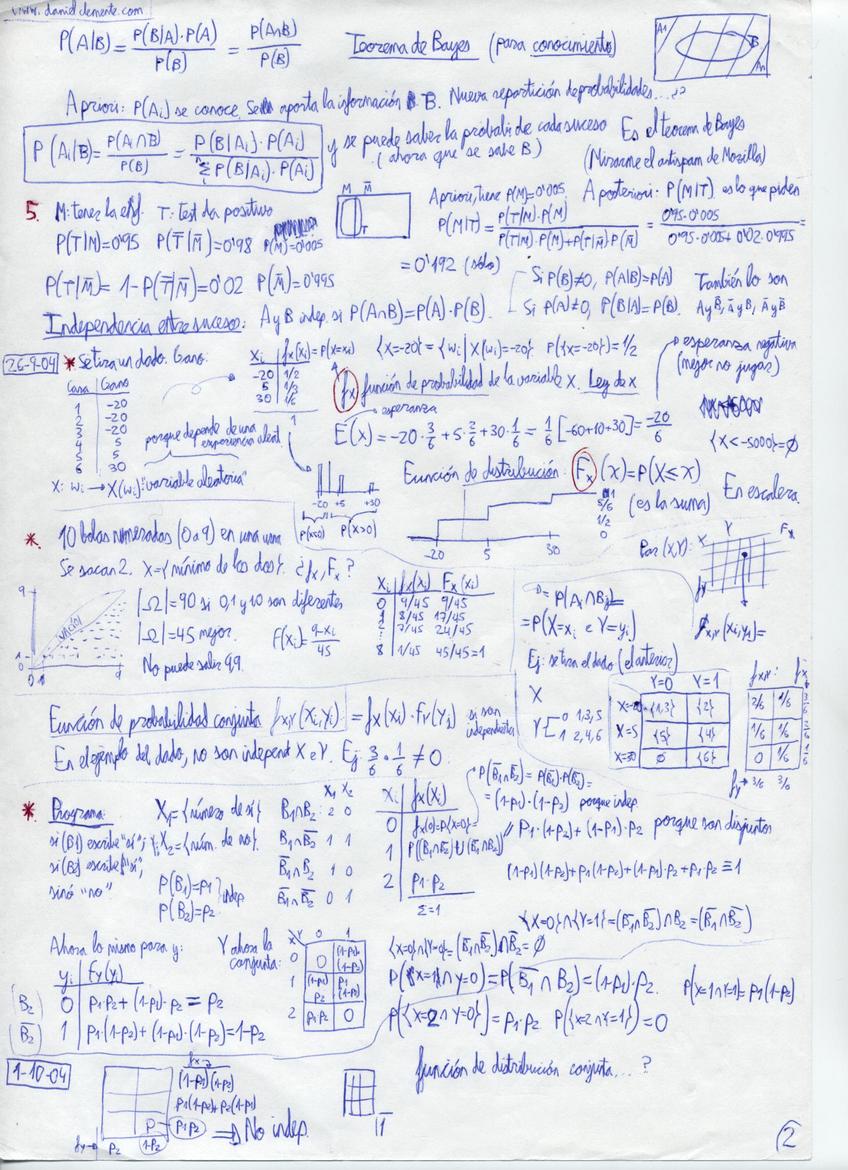 www.danielclemente.com
P(A|B) = P(B|A)·P(A) / P(B) = P(A∩B) / P(B)
Teorema de Bayes (para conocimiento)
A1 B An
A priori: P(Ai) se conoce. Se aporta la información B. Nueva repartición de probabilidades...¿?
P(Ai|B) = P(Ai∩B) / P(B) = P(B|Ai)·P(Ai) / Σ P(B|Ai)·P(Ai)
y se puede saber la probabi. de cada suceso
(ahora que se sabe B)
Es el teorema de Bayes
(Mirarme el antispam de Mozilla)
5. M: tener la enf. T: test da positivo
M M̄ T
P(T|M)=0'95 P(T̄|M̄)=0'98 P(M)=0'005
P(T|M̄) = 1-P(T̄|M̄)=0'02 P(M̄)=0'995
A priori, tiene P(M)=0'005. A posteriori: P(M|T) es lo que piden
P(M|T) = P(T|M)·P(M) / P(T|M)·P(M)+P(T|M̄)·P(M̄) = 0'95·0'005 / 0'95·0'005+0'02·0'995 =
= 0'192 (sólo)
Independencia entre suceso: A y B indep. si P(A∩B)=P(A)·P(B).
Si P(B)≠0, P(A|B)=P(A)
Si P(A)≠0, P(B|A)=P(B).
También lo son
A y B̄, Ā y B, Ā y B̄
26-9-04 * se tira un dado. Gano:
Cara Gano
1 -20
2 -20
3 -20
4 5
5 5
6 30
porque depende de una experiencia aleat.
X: wi → X(wi) "variable aleatoria"
Xi fx(Xi)=P(X=xi)
-20 1/2
5 1/3
30 1/6
1
{X=-20} = {wi | X(wi)=-20} P({X=-20})=1/2
fx función de probabilidad de la variable X. Ley de x
esperanza
esperanza negativa
(mejor no jugar)
E(X) = -20·3/6 + 5·2/6 + 30·1/6 = 1/6 [-60+10+30] = -20/6
{X<-5000}=∅
-20 +5 +30
P(X<0) P(X>0)
Función de distribución: Fx(x)=P(X≤x)
(es la suma)
En escalera.
-20 5 30
1
5/6
1/2
0
* 10 bolas numeradas (0 a 9) en una urna
Se sacan 2. X={mínimo de los dos}. ¿fx, Fx?
9
1
0
0 1 9
|Ω|=90 si 0,1 y 1,0 son diferentes
|Ω|=45 mejor.
No puede salir 9,9.
F(xi) = 9-xi / 45
Xi fx(xi) Fx(xi)
0 9/45 9/45
1 8/45 17/45
2 7/45 24/45
8 1/45 45/45=1
Par (X,Y):
= P(Ai∩Bj)
= P(X=xi e Y=yi)
Ej: se tira el dado (el anterior)
X
Y 0 1,3,5
1 2,4,6
Y=0 Y=1
X=-20 {1,3} {2}
X=5 {5} {4}
X=30 ∅ {6}
fx,y: fx
2/6 1/6 3/6
1/6 1/6 2/6
0 1/6 1/6
fy→ 3/6 3/6
Función de probabilidad conjunta fx,y(Xi,Yi) = fx(Xi)·fy(Yi) si son independientes
En el ejemplo del dado, no son independ X e Y. Ej: 3/6·1/6 ≠ 0.
* Programa:
si(B1) escribe "si";
si(B2) escribe "si";
sinó "no"
X1={número de si}
X2={núm. de no}.
P(B1)=p1
P(B2)=p2
indep
X1 X2
B1∩B2: 2 0
B1∩B̄2 1 1
B̄1∩B2 1 0
B̄1∩B̄2 0 1
Xi fx(Xi)
0 fx(0)=P(X=0)=
1 P((B1∩B̄2)∪(B̄1∩B2))
2 p1·p2
Σ=1
P(B̄1∩B̄2) = P(B̄1)·P(B̄2)=
=(1-p1)·(1-p2) porque indep
p1·(1-p2)+(1-p1)·p2 porque son disjuntos
(1-p1)(1-p2)+p1(1-p2)+(1-p1)·p2+p1·p2 ≡ 1
{X=0}∩{Y=1}=(B̄1∩B̄2)∩B̄2=(B̄1∩B̄2)
Ahora lo mismo para y:
yi fy(yi)
B2 0 p1p2+(1-p1)·p2 = p2
B̄2 1 p1·(1-p2)+(1-p1)·(1-p2)=1-p2
Y ahora la conjunta:
X Y 0 1
0 0 (1-p1)·(1-p2)
1 (1-p1)p2 p1(1-p2)
2 p1p2 0
{X=0}∩{Y=0}=(B̄1∩B̄2)∩B2=∅
P({X=1∩Y=0})=P(B̄1∩B2)=(1-p1)·p2.
P(X=1∩Y=1)=p1(1-p2)
P({X=2∩Y=0})=p1·p2 P({X=2∩Y=1})=0
1-10-04
fx
(1-p1)(1-p2)
p1(1-p2)+p2(1-p1)
p1p2
fy→ p2 1-p2
⇒ No indep.
función de distribución conjunta...?
2